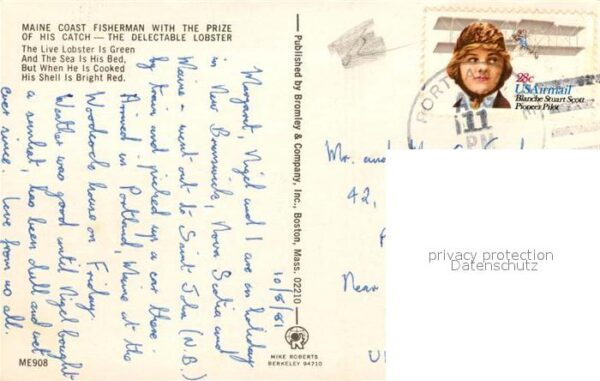 MAINE COAST FISHERMAN WITH THE PRIZE
OF HIS CATCH — THE DELECTABLE LOBSTER
The Live Lobster Is Green
And The Sea Is His Bed,
But When He Is Cooked
His Shell Is Bright Red.
10/8/81
Margaret, Nigel and I are on holiday
in New Brunswick, Nova Scotia and
Maine – went out to Saint John (N.B.)
by train and picked up a car there.
Arrived in Portland, Maine at the
Woodcocks house on Friday.
Weather was good until Nigel bought
a sunhat, has been dull and wet
ever since. Love from us all.
ME908
Published by Bromley & Company, Inc., Boston, Mass. 02210
MIKE ROBERTS
BERKELEY 94710
28c
USAirmail
Blanche Stuart Scott
Pioneer Pilot
PORTLA
11
PM
Mr. and
42,
Near
U
privacy protection
Datenschutz